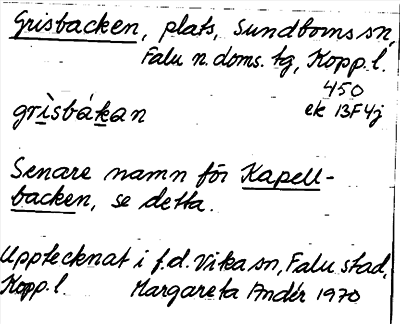 Grisbacken, plats, Sundborns sn,
Falu n. doms. tg, Kopp. l.
450
ek 13F4j
grìsbákan
Senare namn för Kapell-
backen, se detta.
Upptecknat i f.d. Vika sn, Falu stad,
Kopp. l. Margareta Andér 1970